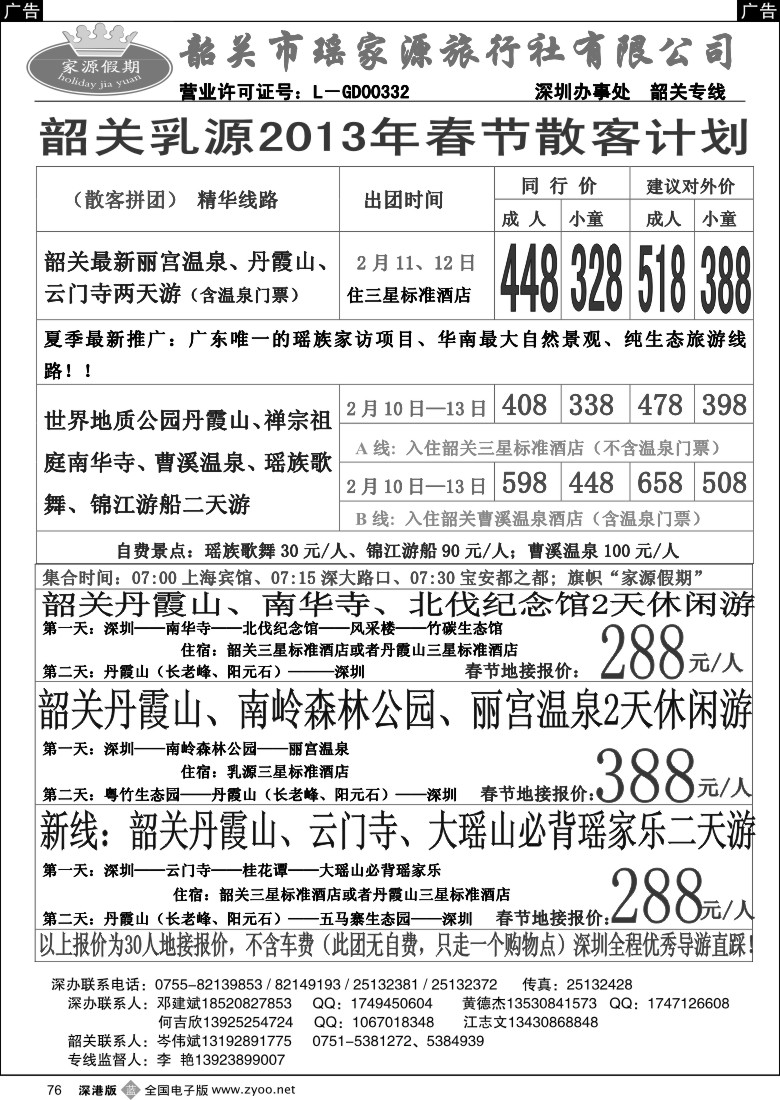 广告
广告
家源假期
holiday jia yuan
韶关市瑶家源旅行社有限公司
营业许可证号：L－GD00332 深圳办事处 韶关专线
韶关乳源2013年春节散客计划
（散客拼团） 精华线路 出团时间 同行价 建议对外价
成人 小童 成人 小童
韶关最新丽宫温泉、丹霞山、
云门寺两天游（含温泉门票）
2月11、12日
住三星标准酒店
448 328 518 388
夏季最新推广：广东唯一的瑶族家访项目、华南最大自然景观、纯生态旅游线
路！！
世界地质公园丹霞山、禅宗祖
庭南华寺、曹溪温泉、瑶族歌
舞、锦江游船二天游
2月10日—13日 408 338 478 398
A线：入住韶关三星标准酒店（不含温泉门票）
2月10日—13日 598 448 658 508
B线：入住韶关曹溪温泉酒店（含温泉门票）
自费景点：瑶族歌舞30元/人、锦江游船90元/人；曹溪温泉100元/人
集合时间：07:00上海宾馆、07:15深大路口、07:30宝安都之都；旗帜“家源假期”
韶关丹霞山、南华寺、北伐纪念馆2天休闲游
第一天：深圳——南华寺——北伐纪念馆——风采楼——竹碳生态馆
住宿：韶关三星标准酒店或者丹霞山三星标准酒店
第二天：丹霞山（长老峰、阳元石）———深圳 春节地接报价：288元/人
韶关丹霞山、南岭森林公园、丽宫温泉2天休闲游
第一天：深圳——南岭森林公园——丽宫温泉
住宿：乳源三星标准酒店
第二天：粤竹生态园——丹霞山（长老峰、阳元石）——深圳 春节地接报价：388元/人
新线：韶关丹霞山、云门寺、大瑶山必背瑶家乐二天游
第一天：深圳——云门寺——桂花谭——大瑶山必背瑶家乐
住宿：韶关三星标准酒店或者丹霞山三星标准酒店
第二天：丹霞山（长老峰、阳元石）——五马寨生态园——深圳 春节地接报价：288元/人
以上报价为30人地接报价，不含车费（此团无自费，只走一个购物点）深圳全程优秀导游直踩！
深办联系电话：0755-82139853 / 82149193 / 25132381 / 25132372 传真：25132428
深办联系人：邓建斌18520827853 QQ：1749450604 黄德杰13530841573 QQ：1747126608
何吉欣13925254724 QQ：1067018348 江志文13430868848
韶关联系人：岑伟斌13192891775 0751-5381272、5384939
专线监督人：李 艳13923899007
76 深港版 蓝 全国电子版 www.zyoo.net